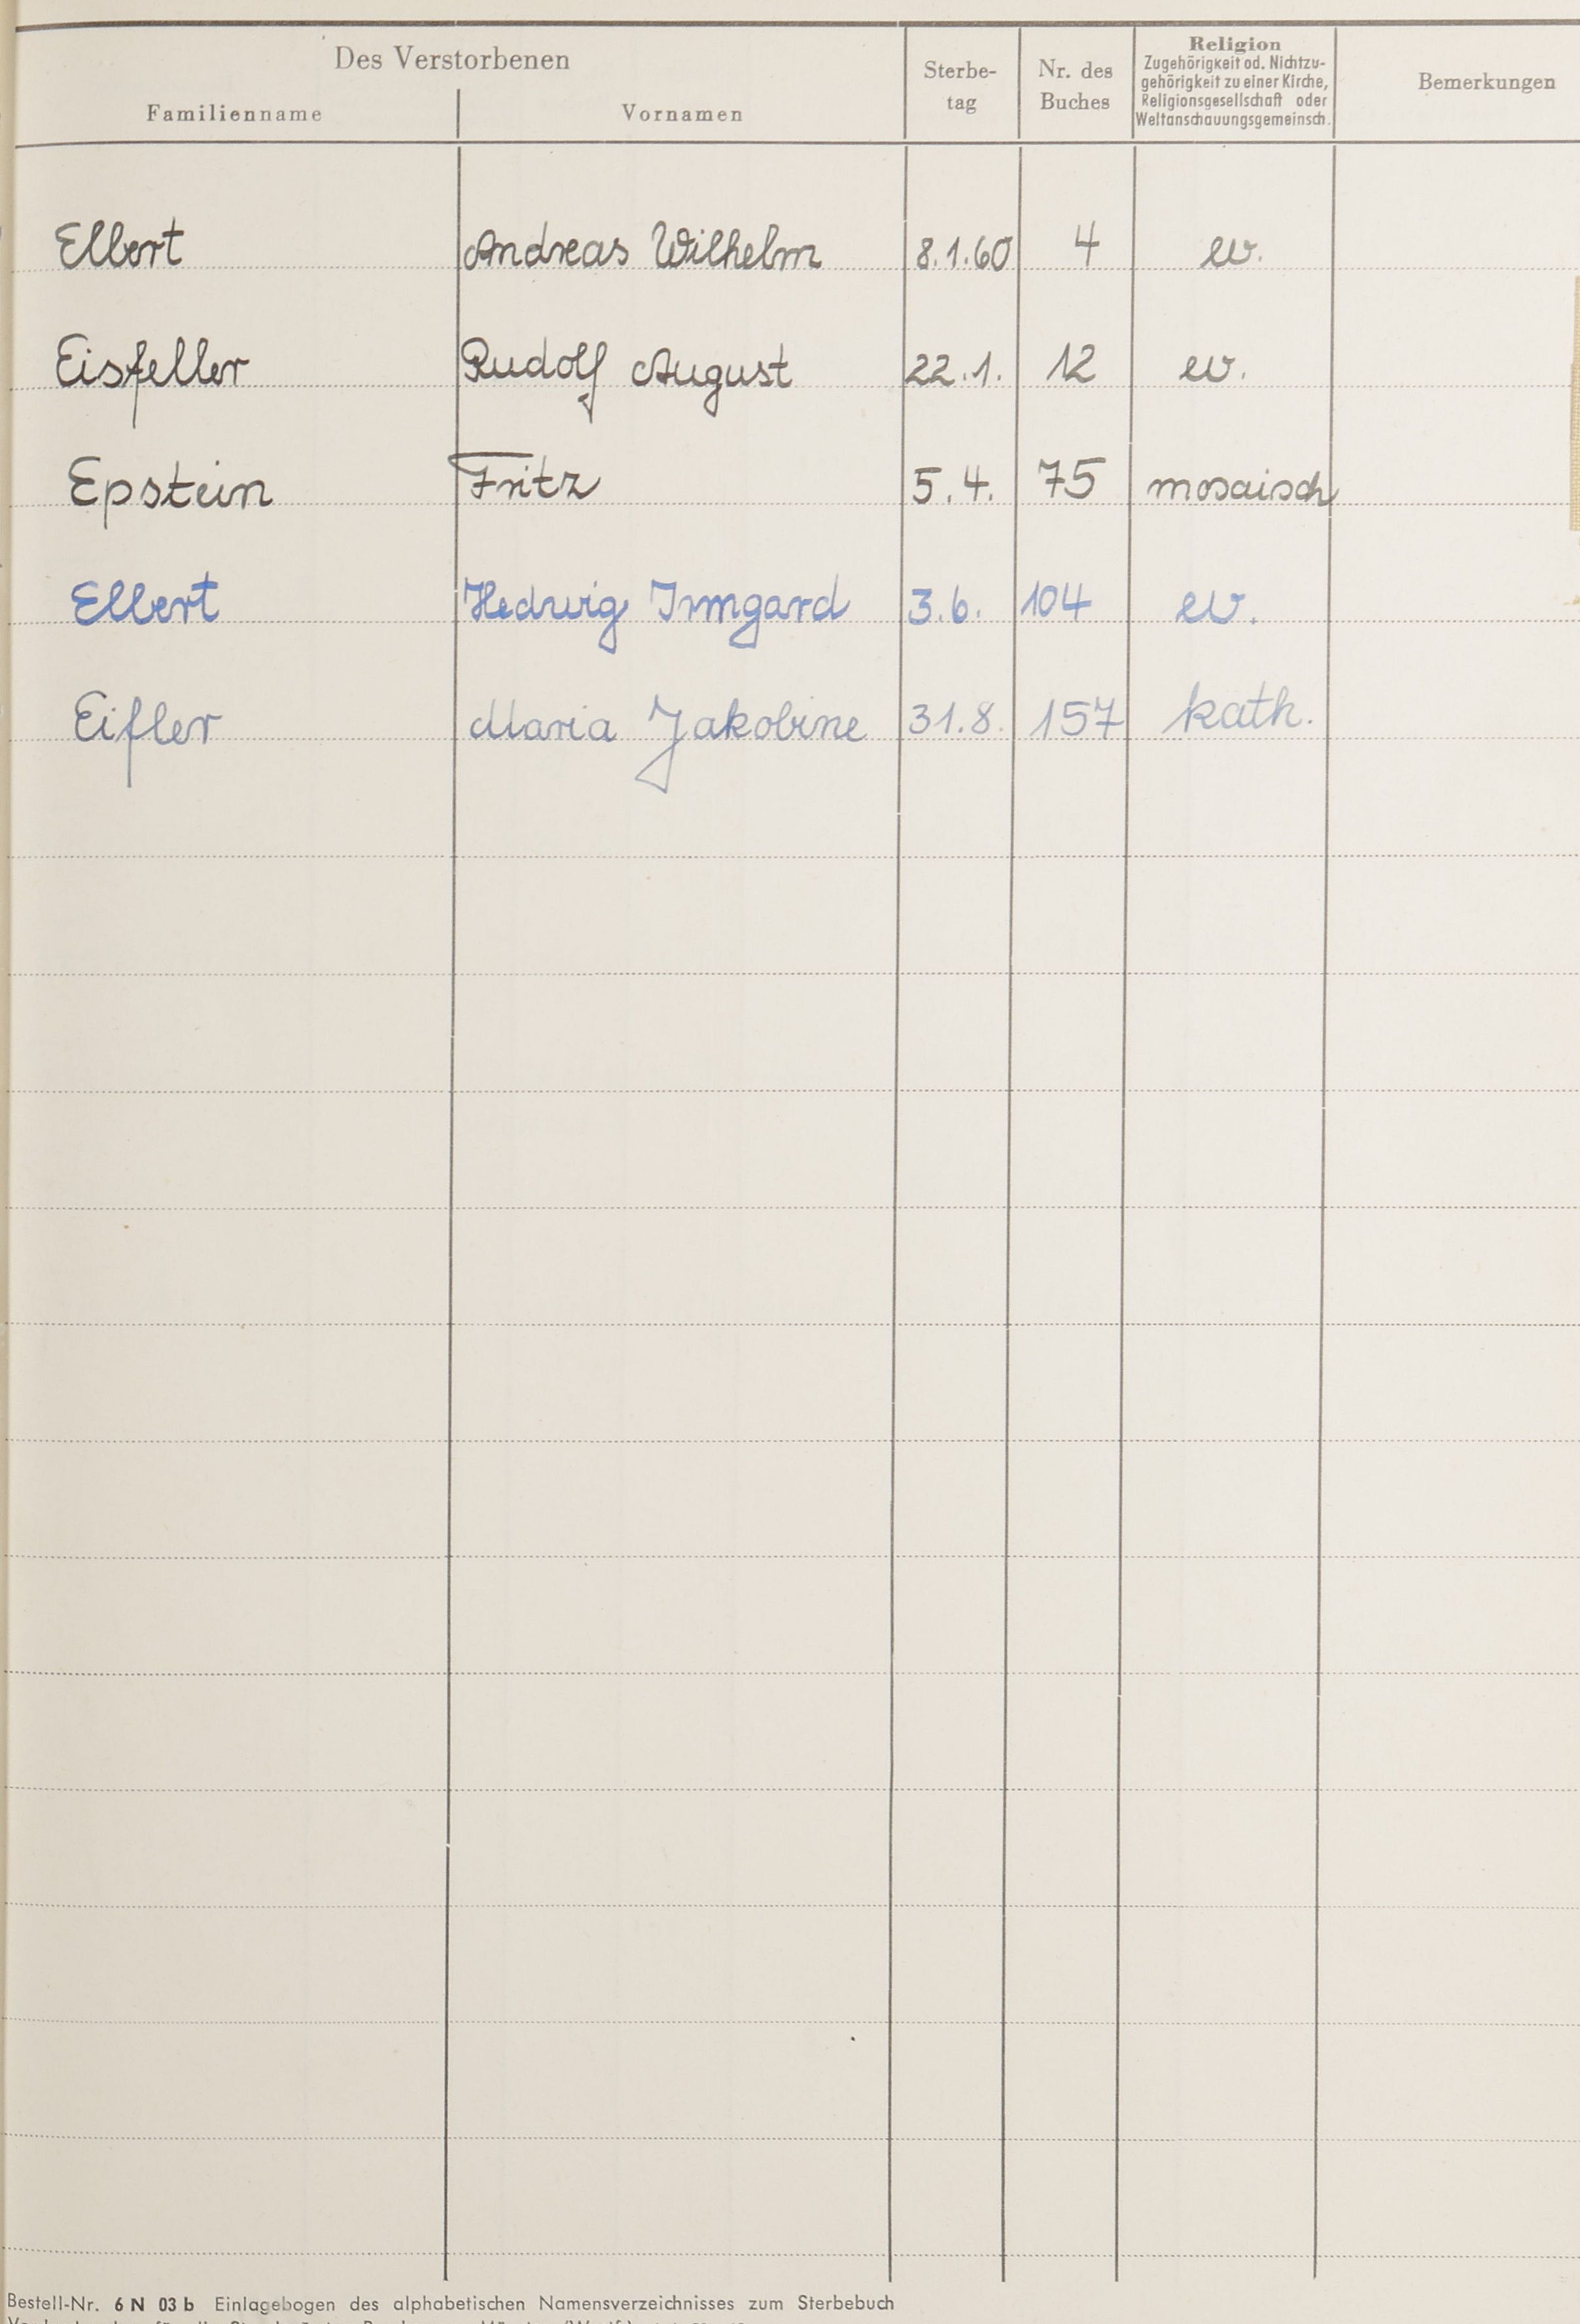 Des Verstorbenen
Familienname
Vornamen
Sterbe-
tag
Nr. des
Buches
Religion
Zugehörigkeit od. Nichtzu-
gehörigkeit zu einer Kirche,
Religionsgesellschaft oder
Weltanschauungsgemeinsch.
Bemerkungen
Elbert Andreas Wilhelm 8.1.60 4 ev.
Eisfeller Rudolf August 22.1. 12 ev.
Epstein Fritz 5.4. 75 mosaisch
Elbert Hedwig Irmgard 3.6. 104 ev.
Eifler Maria Jakobine 31.8. 157 kath.
Bestell-Nr. 6 N 03 b Einlagebogen des alphabetischen Namensverzeichnisses zum Sterbebuch